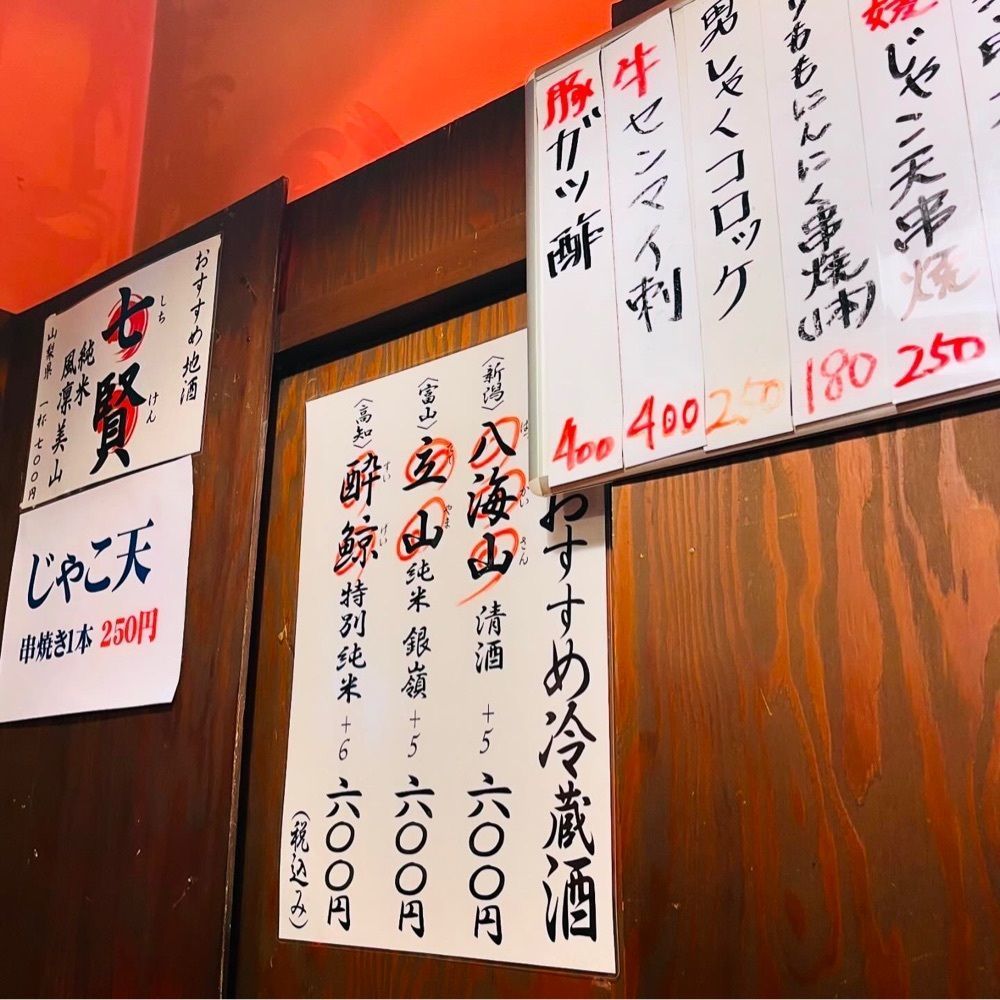 おすすめ地酒
七賢
しち
けん
純米
風凛美山
山梨県 一杯 七〇〇円
じゃこ天
串焼き1本 250円
おすすめ冷蔵酒
〈新潟〉八海山 清酒 +5 六〇〇円
はっ
かい
さん
〈富山〉立山 純米 銀嶺 +5 六〇〇円
たて
やま
〈高知〉酔鯨 特別純米 +6 六〇〇円
すい
げい
(税込み)
焼じゃこ天串焼 250
りももにんにく串焼(1本) 180
男しゃくコロッケ 250
牛センマイ刺 400
豚ガツ酢 400